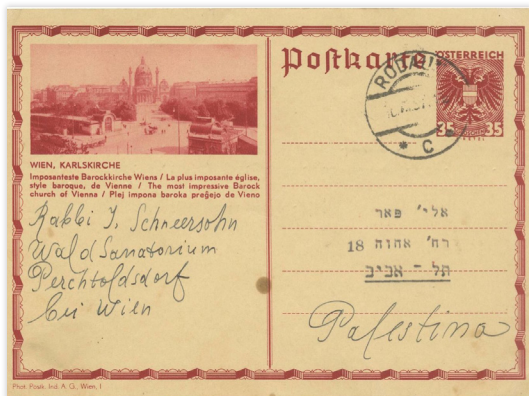 WIEN, KARLSKIRCHE
Imposanteste Barockkirche Wiens / La plus imposante église,
style baroque, de Vienne / The most impressive Barock
church of Vienna / Plej impona baroka preĝejo de Vieno
Rabbi J. Schneersohn
Wald Sanatorium
Perchtoldsdorf
bei Wien
Phot. Postk. Ind. A. G., Wien, I
Postkarte
ÖSTERREICH
35 35
C
אלי' פאר
רח' אחוה 18
תל - אביב
Palestina